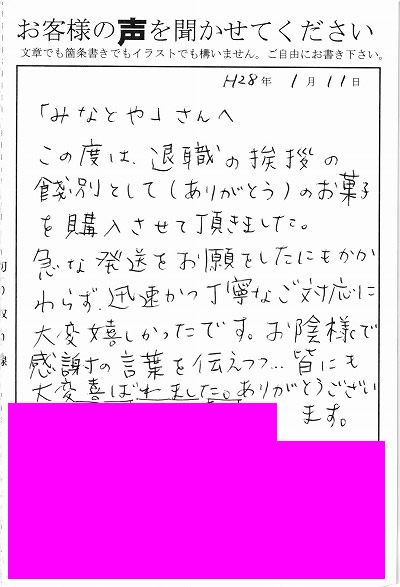 お客様の声を聞かせてください
文章でも箇条書きでもイラストでも構いません。ご自由にお書き下さい。
H28年 1月11日
「みなとや」さんへ
この度は、退職の挨拶の
餞別として(ありがとう)のお菓子
を購入させて頂きました。
急な発送をお願をしたにもかか
わらず、迅速かつ丁寧なご対応に
大変嬉しかったです。お陰様で
感謝の言葉を伝えつつ…皆にも
大変喜ばれました。ありがとうござい
ます。